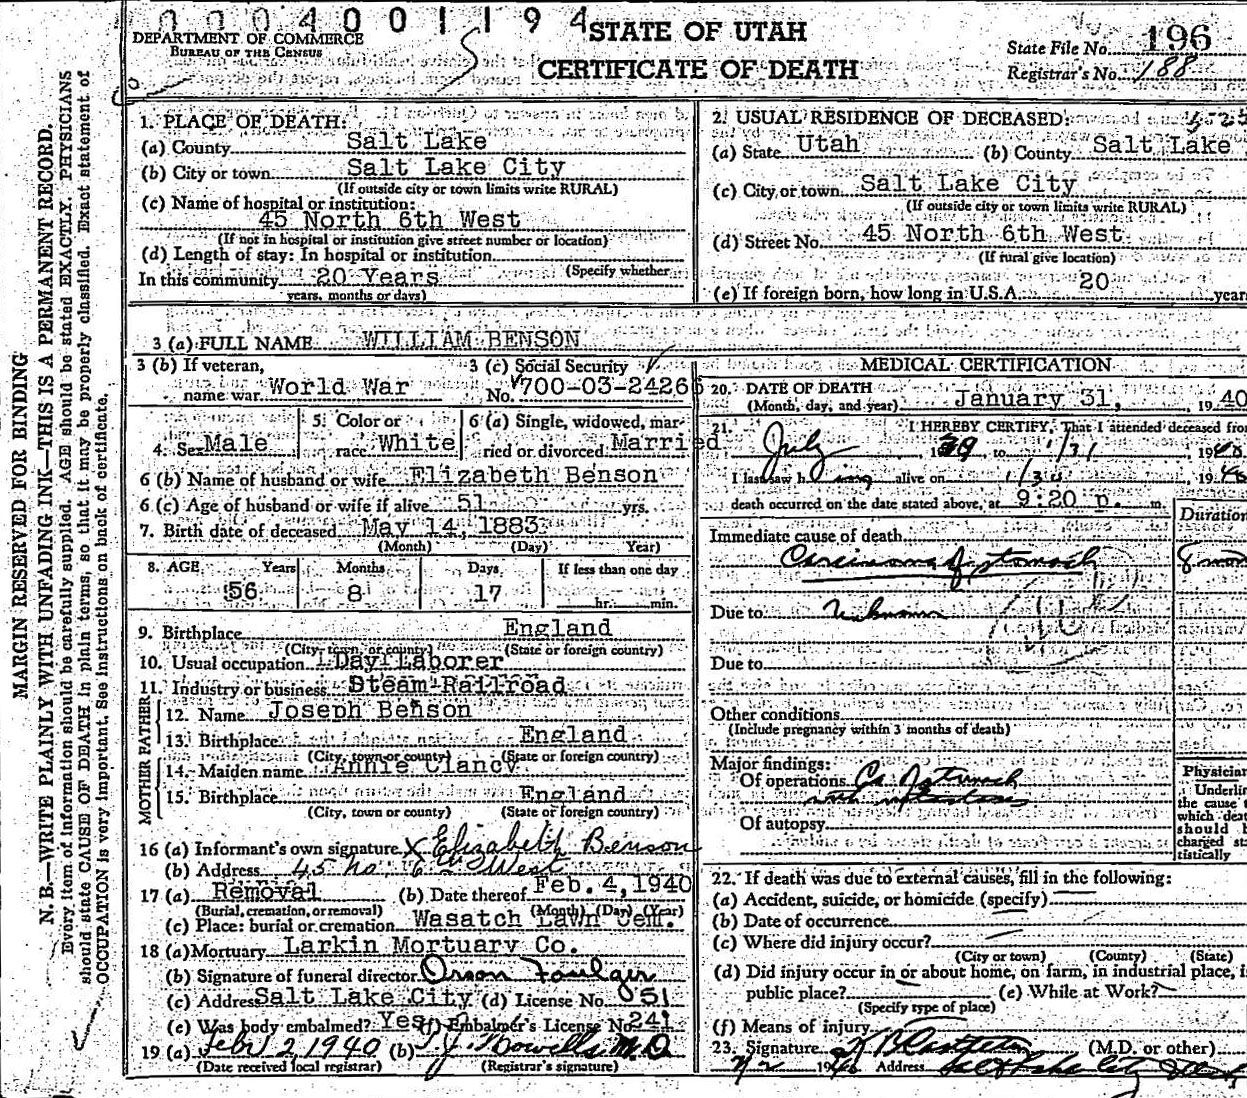 0004001194
STATE OF UTAH
CERTIFICATE OF DEATH
DEPARTMENT OF COMMERCE
BUREAU OF THE CENSUS
State File No. 196
Registrar's No. 188
MARGIN RESERVED FOR BINDING
N. B.—WRITE PLAINLY WITH UNFADING INK—THIS IS A PERMANENT RECORD.
Every item of information should be carefully supplied. AGE should be stated EXACTLY. PHYSICIANS
should state CAUSE OF DEATH in plain terms, so that it may be properly classified. Exact statement of
OCCUPATION is very important. See instructions on back of certificate.
1. PLACE OF DEATH:
(a) County Salt Lake
(b) City or town Salt Lake City
(If outside city or town limits write RURAL)
(c) Name of hospital or institution:
45 North 6th West
(If not in hospital or institution give street number or location)
(d) Length of stay: In hospital or institution
(Specify whether
In this community 20 Years
years, months or days)
2. USUAL RESIDENCE OF DECEASED:
(a) State Utah (b) County Salt Lake
(c) City or town Salt Lake City
(If outside city or town limits write RURAL)
(d) Street No. 45 North 6th West
(If rural give location)
(e) If foreign born, how long in U.S.A. 20 years
3 (a) FULL NAME WILLIAM BENSON
3 (b) If veteran,
name war World War
3 (c) Social Security
No. 700-03-2426
4. Sex Male
5. Color or
race White
6 (a) Single, widowed, mar-
ried or divorced Married
6 (b) Name of husband or wife Elizabeth Benson
6 (c) Age of husband or wife if alive 51 yrs.
7. Birth date of deceased May 14, 1883
(Month) (Day) Year)
8. AGE Years Months Days If less than one day
56 8 17 hr. min.
9. Birthplace England
(City, town, or county) (State or foreign country)
10. Usual occupation Day Laborer
11. Industry or business Steam Railroad
FATHER
12. Name Joseph Benson
13. Birthplace England
(City, town or county) (State or foreign country)
MOTHER
14. Maiden name Annie Clancy
15. Birthplace England
(City, town or county) (State or foreign country)
16 (a) Informant's own signature X Elizabeth Benson
(b) Address 45 No. 6th West
17 (a) Removal (b) Date thereof Feb. 4, 1940
(Burial, cremation, or removal) (Month) (Day) (Year)
(c) Place: burial or cremation Wasatch Lawn Cem.
18 (a) Mortuary Larkin Mortuary Co.
(b) Signature of funeral director Orson Foulger
(c) Address Salt Lake City (d) License No. 051
(e) Was body embalmed? Yes (f) Embalmer's License No. 241
19 (a) Feb 2, 1940 (b) T. J. Howells M.D.
(Date received local registrar) (Registrar's signature)
MEDICAL CERTIFICATION
20. DATE OF DEATH
(Month, day, and year) January 31, 1940
21. I HEREBY CERTIFY, That I attended deceased from
July 1939 to 1/31 1940
I last saw him alive on 1/30, 1940
death occurred on the date stated above, at 9:20 p. m.
Duration
Immediate cause of death
Carcinoma of stomach 8 mos
Due to Unknown
Due to
Other conditions
(Include pregnancy within 3 months of death)
Major findings:
Of operations Ca of stomach
with
Of autopsy
Physician
Underline
the cause
which death
should be
charged sta-
tistically
22. If death was due to external causes, fill in the following:
(a) Accident, suicide, or homicide (specify)
(b) Date of occurrence
(c) Where did injury occur?
(City or town) (County) (State)
(d) Did injury occur in or about home, on farm, in industrial place, in
public place? (e) While at Work?
(Specify type of place)
(f) Means of injury
23. Signature (M.D. or other)
1940 Address Salt Lake City Utah